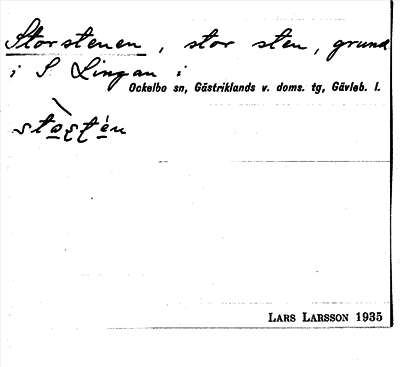 Storstenen, stor sten, grund
i S. Lingan i
Ockelbo sn, Gästriklands v. doms. tg, Gävleb. l.
LARS LARSSON 1935